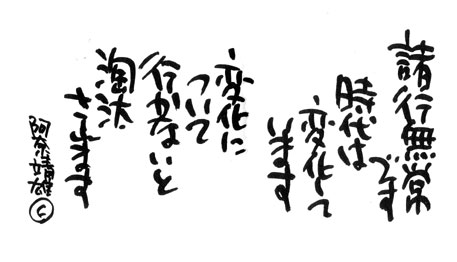 諸行無常
です
時代は
変化して
います
変化に
ついて
行かないと
淘汰
されます
阿奈靖雄
Ⓒ